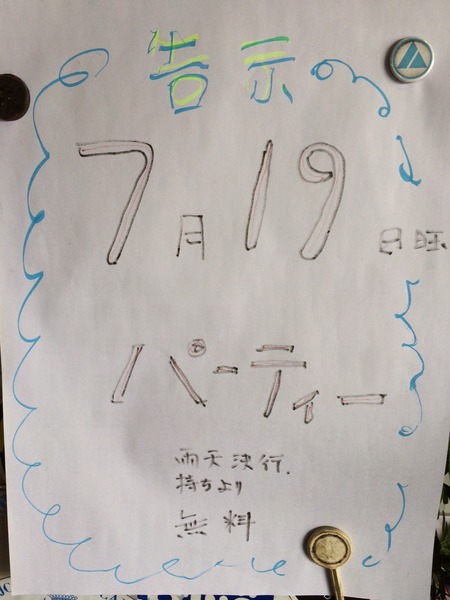 告示
7月19日旺
パーティー
雨天決行.
持ちより
無料